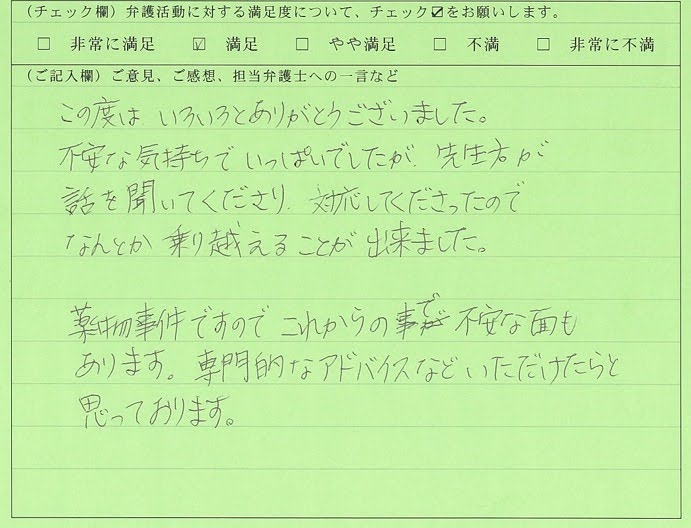 (チェック欄)弁護活動に対する満足度について、チェック☑をお願いします。
□ 非常に満足 ☑ 満足 □ やや満足 □ 不満 □ 非常に不満
(ご記入欄)ご意見、ご感想、担当弁護士への一言など
この度は いろいろとありがとうございました。
不安な気持ちで いっぱいでしたが、先生方が
話を聞いてくださり、対応してくださったので
なんとか 乗り越えることが 出来ました。
薬物事件ですので これからの事で 不安な面も
あります。専門的なアドバイスなど いただけたらと
思っております。